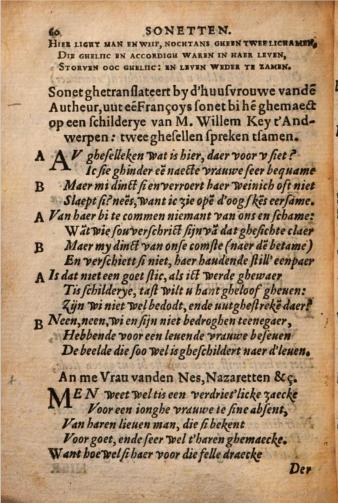 60. SONETTEN.
HIER LIGHT MAN EN WIIF, NOCHTANS GHEEN TWEE LICHAMEN,
DIE GHELIIC EN ACCORDIGH WAREN IN HAER LEVEN,
STORVEN OOC GHELIIC: EN LEVEN WEDER TE ZAMEN.
Sonet ghetranslateert by d'huusvrouwe vandē
Autheur, uut eē Françoys sonet bi hē ghemaect
op een schilderye van M. Willem Key t'And-
werpen: twee ghesellen spreken tsamen.
A AV gheselleken wat is hier, daer voor v siet?
Ic sie ghinder eē naecte vrauwe seer bequame
B Maer mi dinct si en verroert haer weinich oft niet
Slaept si? neēs, want ic zie opē d'oogskēs eersame.
A Van haer bi te commen niemant van ons en schame:
Wāt wie sou verschrict sijn vā dat ghesichte claer
B Maer my dinct van onse comste (naer dē betame)
En verschiett si niet, haer haudende still' eenpaer
A Is dat niet een goet stic, als ict werde ghewaer
Tis schilderye, tast wilt u hant gheloof gheuen:
Zijn wi niet wel bedodt, ende uutghestrekē daer?
B Neen, neen, wi en sijn niet bedroghen teenegaer,
Hebbende voor een leuende vrauwe beseuen
De beelde die soo wel is gheschildert naer d'leuen.
An me Vrau vanden Nes, Nazaretten &ç.
MEN weet wel tis een verdriet'licke zaecke
Voor een ionghe vrauwe te sine absent,
Van haren lieuen man, die si bekent
Voor goet, ende seer wel t'haren ghemaecke.
Want hoe wel si haer voor die felle draecke
Der